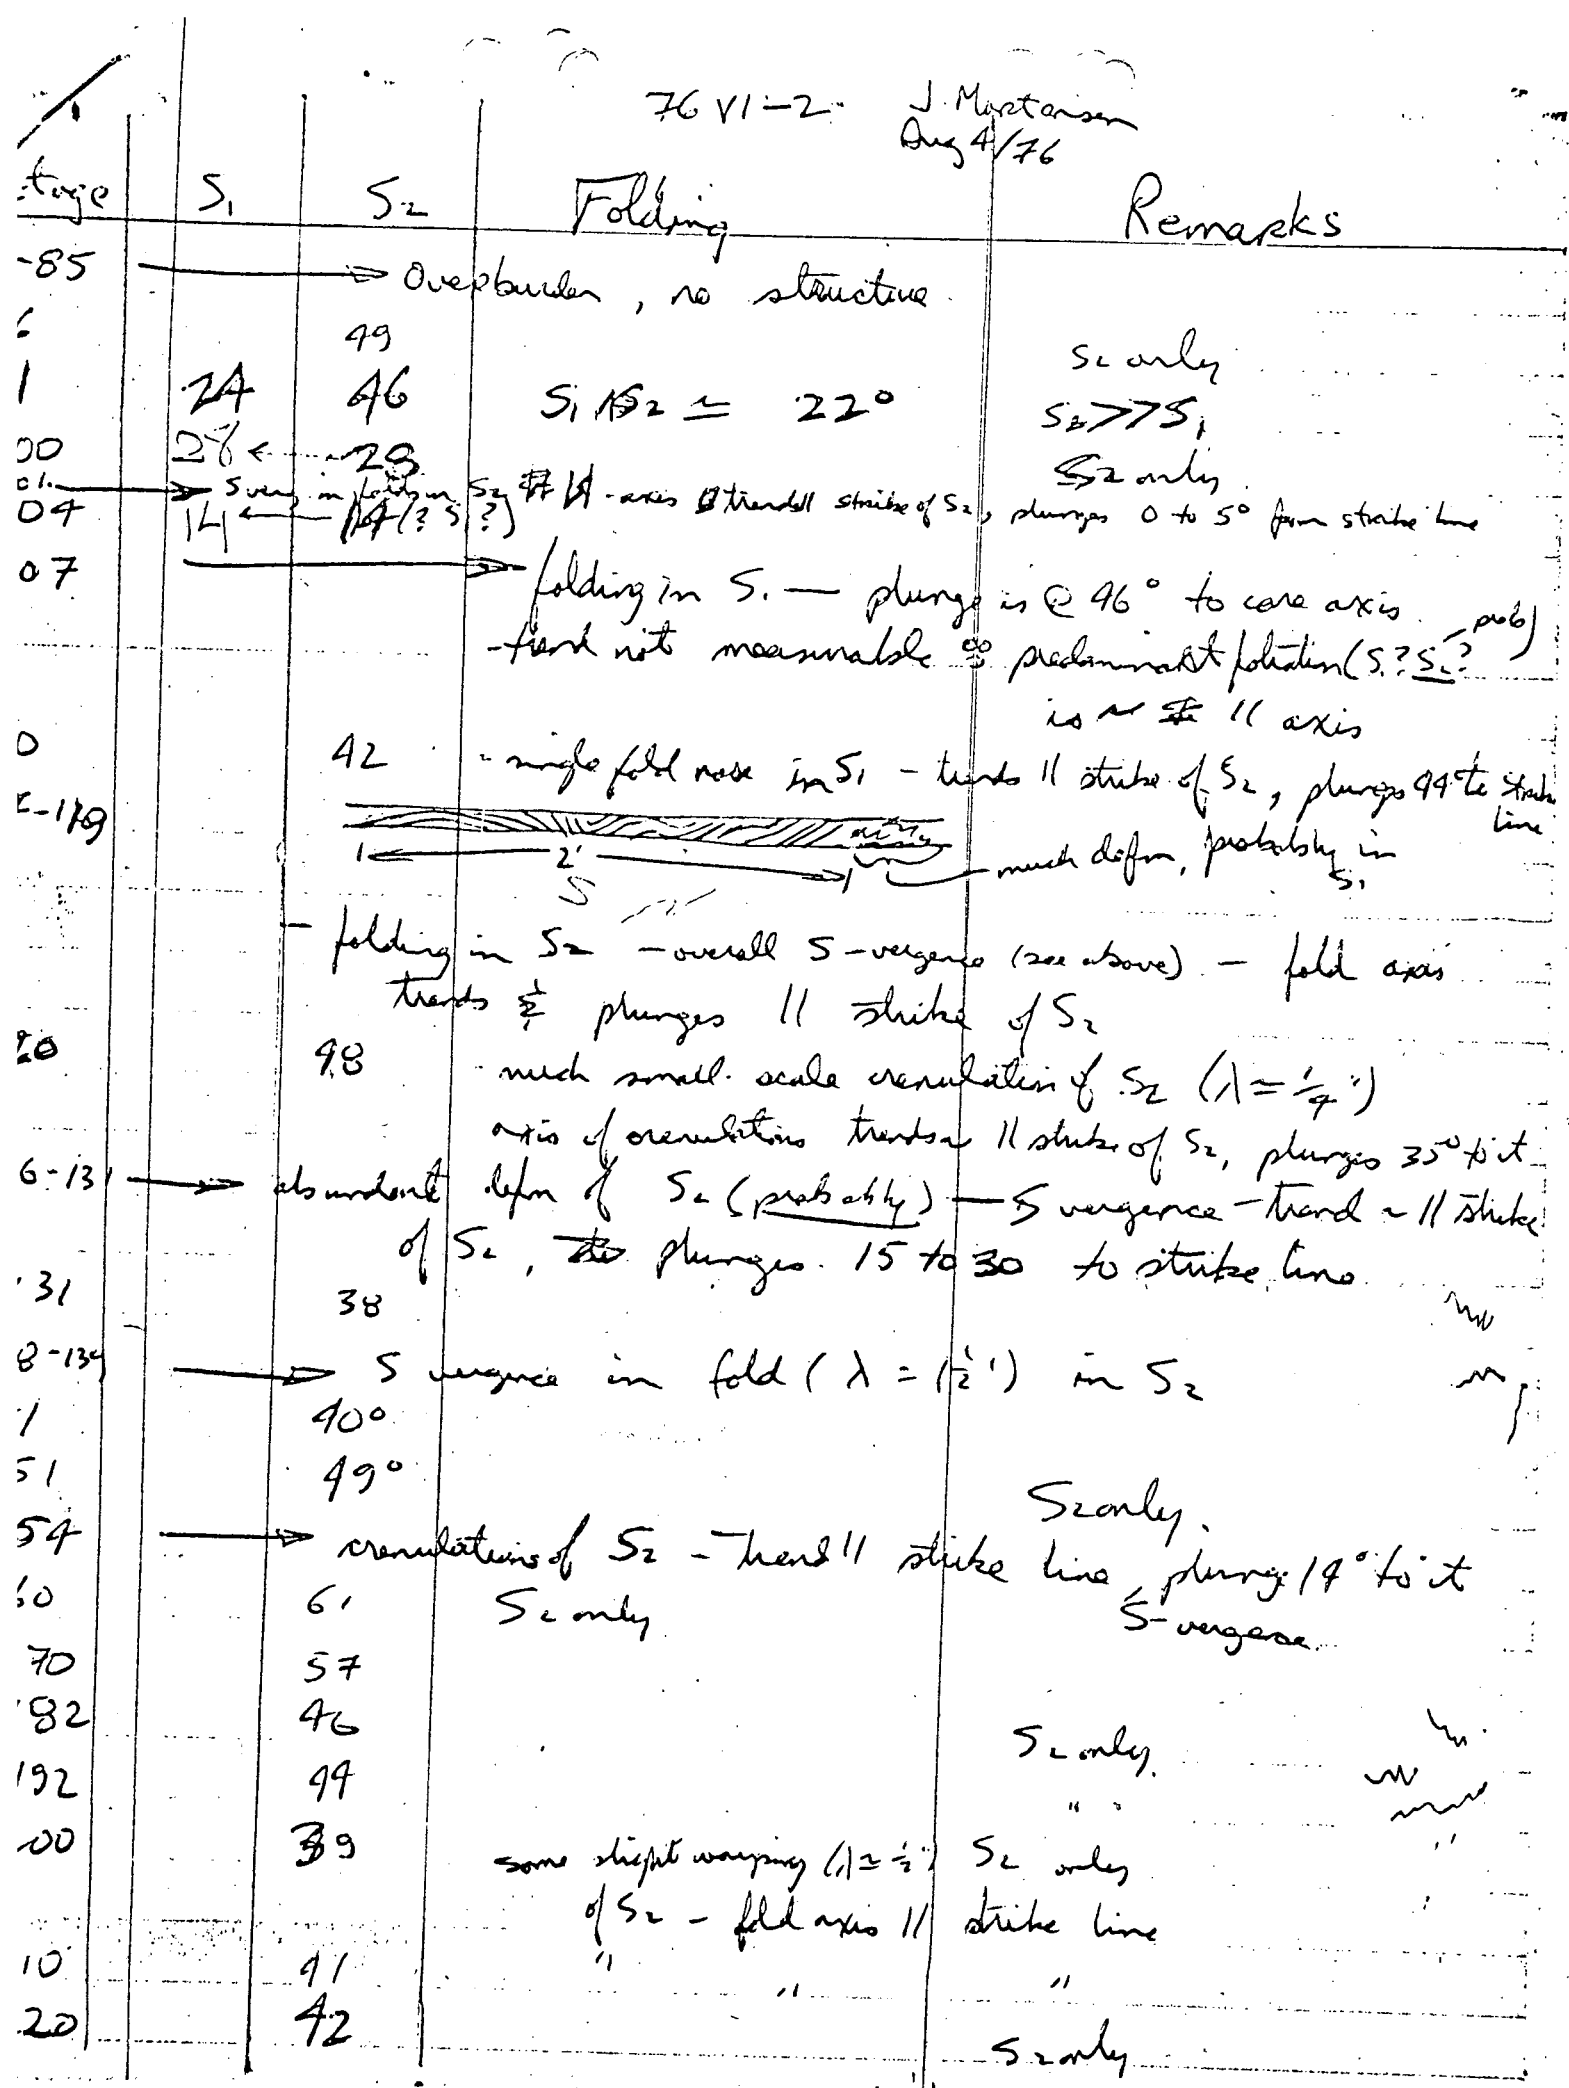 76 V1-2 J. Mortensen
Aug 4/76
tage S₁ S₂ Folding Remarks
-85 → Overburden, no structure
6 49 S₂ only
1 24 46 S₁ ∧ S₂ ≃ 22° S₂>>S₁
00 28 ← 28 S₂ only
01 → S verg. in folds in S₂ - axis trend || strike of S₂, plunges 0 to 5° from strike line
04 14 ← 14 (? S₁?)
07 → folding in S₁ — plunge is @ 46° to core axis
- trend not measurable ∵ predominant foliation (S₁? S₂? prob)
is ~ || axis
0 42 - single fold nose in S₁ - trends || strike of S₂, plunges 44° to strike
line
5-119
2'
S
much defm, probably in
S₁
- folding in S₂ - overall S-vergence (see above) - fold axis
trends & plunges || strike of S₂
20 48 much small scale crenulation of S₂ (λ ≃ ¼")
axis of crenulations trends ~ || strike of S₂, plunges 35° to it
6-131 → abundant defm of S₂ (probably) — S vergence - trend ~ || strike
of S₂, plunges 15 to 30 to strike line
131 38
8-139 → S vergence in fold (λ = 1½') in S₂
1 40°
51 49°
S₂ only.
54 → crenulations of S₂ - trend || strike line, plunge 14° to it
60 61 S₂ only S-vergence
70 57
182 46 S₂ only
192 44 " "
00 39 some slight warping (λ ≃ ½") S₂ only "
of S₂ - fold axis || strike line
10 41 " " "
20 42 S₂ only